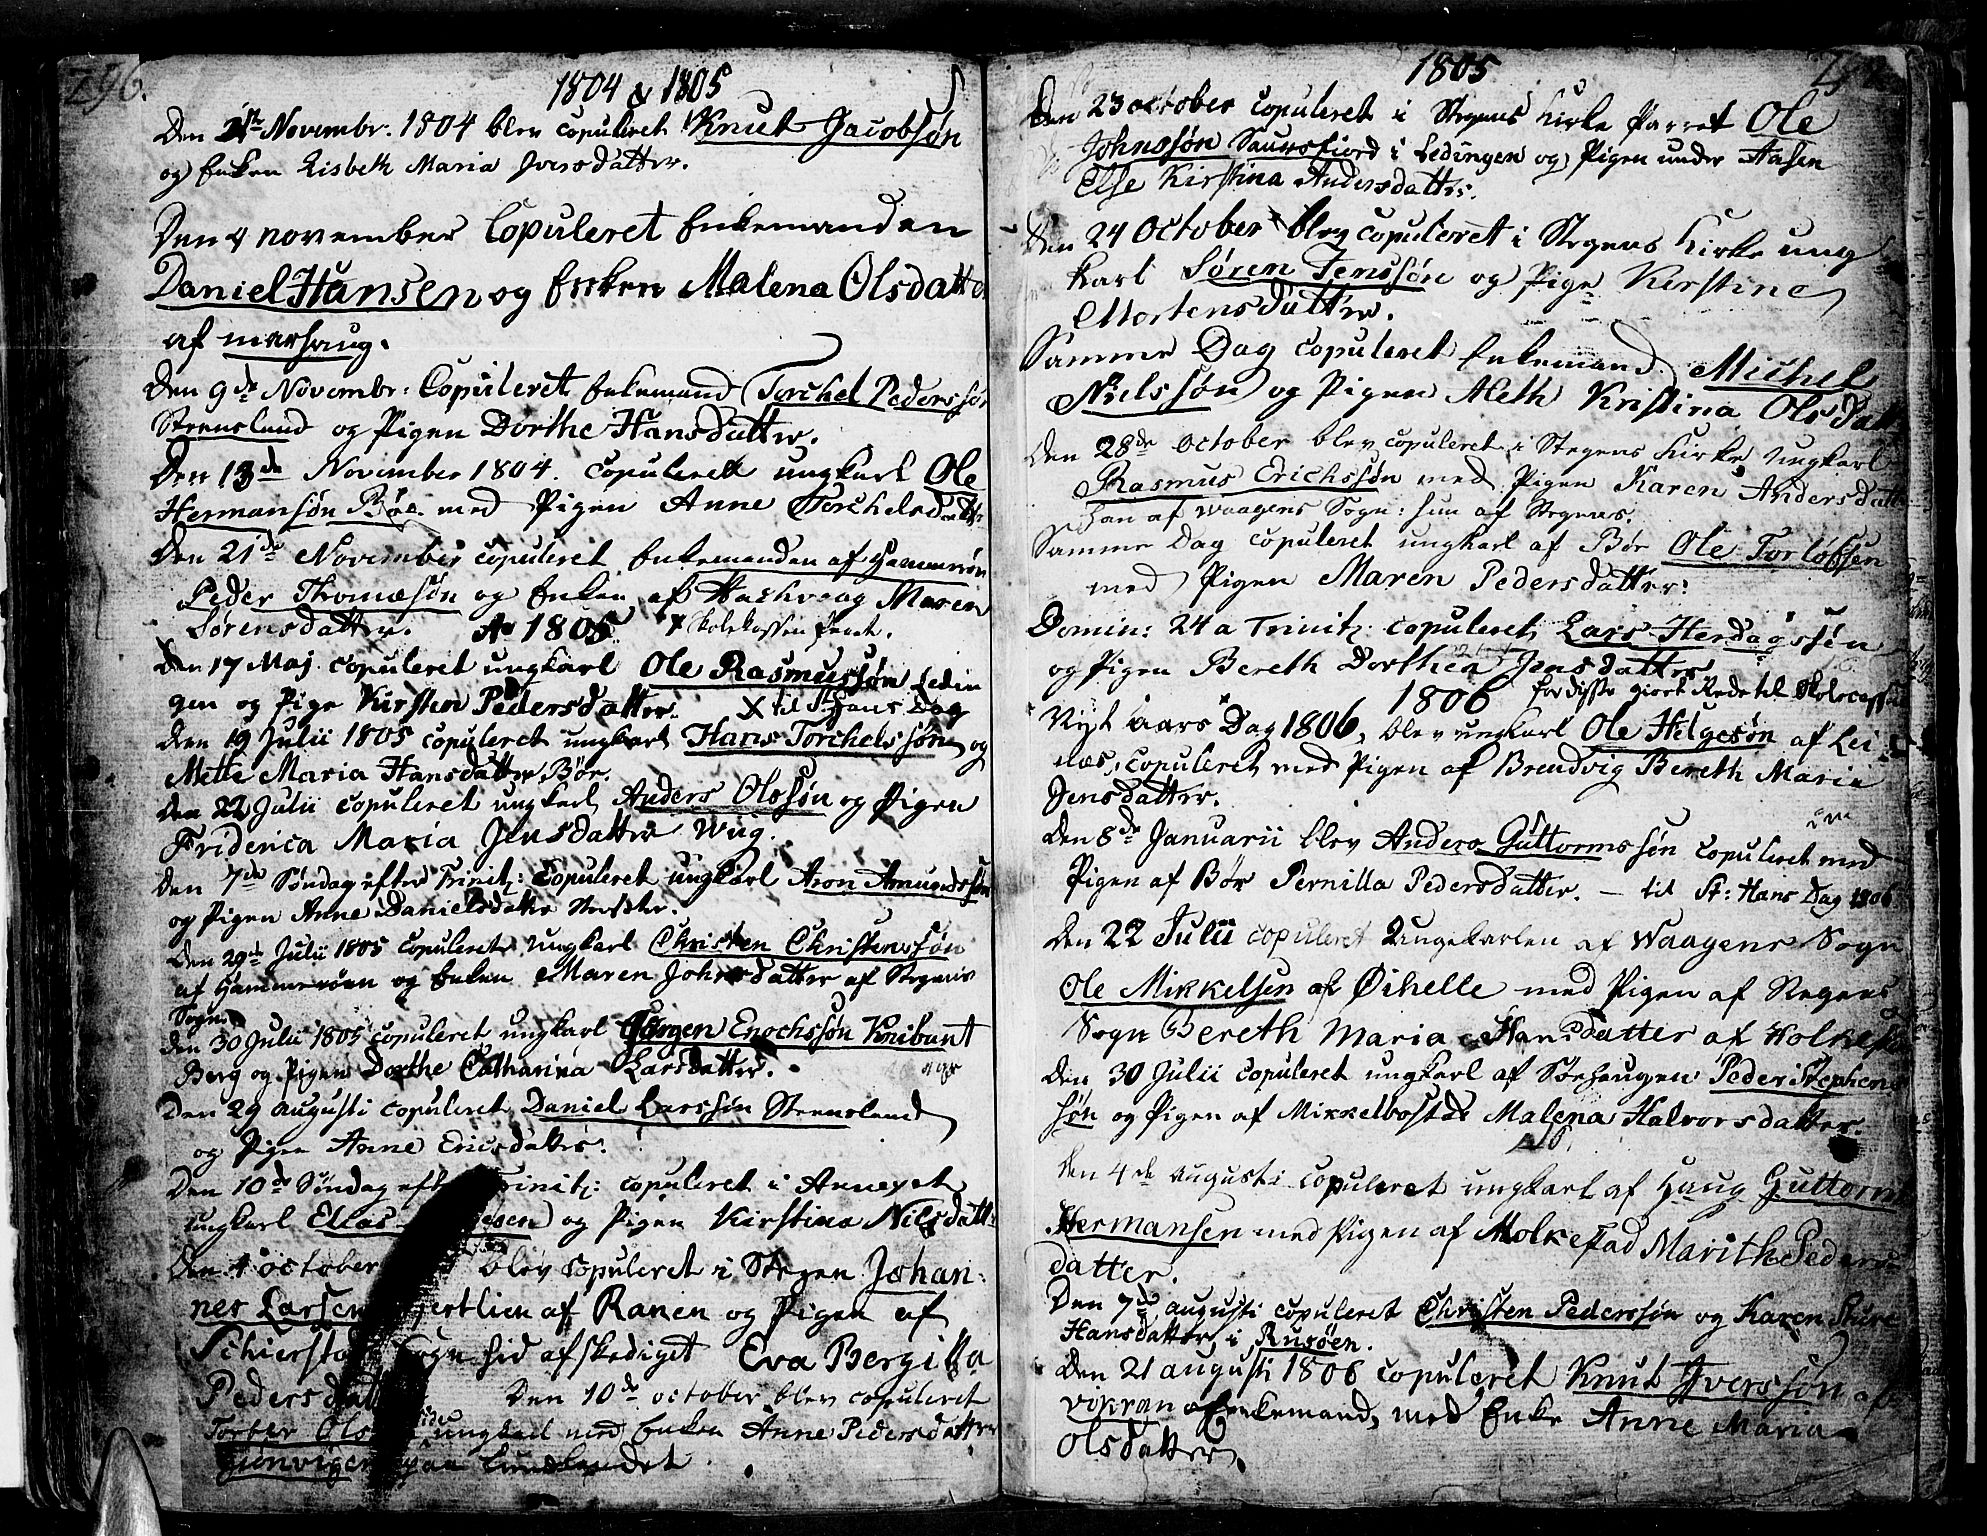 296.
1804 & 1805
Den Novembr. 1804 blev copuleret Knut Jacobsøn
og Enken Lisbeth Maria Iversdatter.
Den 4 november Copuleret Enkemanden
Daniel Hansen og Enken Malena Olsdatter
af
Den 9de Novembr: Copuleret Enkemand Torchel Pederssøn
Steensland og Pigen Dorthe Hansdatter.
Den 13de November 1804. copuleret ungkarl Ole
Hermansøn Bøe med Pigen Anne Torchelsdattr
Den 21de November copuleret Enkemanden af Hammerøn
Peder Thomæsøn og Enken af Maren
Sørensdatter. Ao 1805. x Skolekassen
Den 17 Maj copuleret ungkarl Ole Rasmussøn Ledin
gen og Pige Kirsten Pedersdatter. X til St Hans Dag
Den 19 Julii 1805 copuleret ungkarl Hans Torchelssøn og
Mette Maria Hansdatter Bør.
Den 22 Julii copuleret ungkarl Anders Olssøn og Pigen
Friderica Maria Jensdatter Wiig.
Den 7de Søndag efter Trinit: copuleret ungkarl Aron Amundssøn
og Pigen Anne Danielsdatter
Den 29de Julii 1805 copuleret ungkarl Christen Christenssøn
af Hammerøen og Enken Maren Johnsdatter af Stegens
Sogn
Den 30 Julii 1805 copuleret ungkarl Jørgen Enochssøn Knibunt
Berg og Pigen Dorthe Catharina Larsdatter.
Den 29 augusti copuleret Daniel Larssøn Steensland
og Pigen Anne Ericsdatter.
Den 10de Søndag eft Trinit: copuleret i Annexet
ungkarl Elias og Pigen Kirstina Nilsdattr
Den 4 october blev copuleret i Stegen Johan-
nes Larsen af Ranen og Pigen af
Schierstad Sogn hid afskediget Eva Bergitta
Pedersdatt Den 10de october blev copuleret
Torber Ols ungkarl med Enken Anne Pedersdatter
paa Lundlandet.
1805
Den 23 october copuleret i Stegens Kirke Parret Ole
Johnssøn Saursfiord i Ledingen og Pigen under Aasen
Else Kirstina Andersdatter.
Den 24 October blev copuleret i Stegens Kirke ung
karl Søren Jenssøn og Pige Kirstine
Mortensdatter.
Samme Dag copuleret Enkemand Michel
Nielssøn og Pigen Aleth Kristina Olsdatt
Den 28de October blev copuleret i Stegens Kirke Ungkarl
Rasmus Erichssøn med Pigen Karen Andersdatt
han af Waagens Sogn: hun af Stegens.
Samme Dag copuleret ungkarl af Bør Ole Torløfsen
med Pigen Maren Pedersdatter:
Domin: 24 a Trinit: copuleret Lars Herdagssøn
og Pigen Bereth Dorthea Jensdatter
1806 for disse giort Rede til Skolecassen
Nyt aars Dag 1806, blev ungkarl Ole Helgesøn af Lei-
næs, copuleret med Pigen af Brendvig Bereth Maria
Jensdatter.
Den 8de Januarii blev Anders Guttormssøn copuleret med
Pigen af Bør Pernilla Pedersdatter. — til St: Hans Dag 1806
Den 22 Julii copuleret Ungekarlen af Waagens Sogn
Ole Mikkelsen af Øihelle med Pigen af Stegens
Sogn Bereth Maria Hansdatter af Holke
Den 30 Julii copuleret ungkarl af Sørhaugen Peder Stephens
søn og Pigen af Mikkelbostad Malena Halvorsdatter.
Den 4de augusti copuleret ungkarl af Haug Guttorm
Hermansen med Pigen af Molkestad Marith Peders
datter.
Den 7de augusti copuleret Christen Pederssøn og Karen
Hansdatter i Rusøen.
Den 21 augusti 1806 copuleret Knut Iverssøn af
Vikran Enkemand, med Enke Anne Maria
Olsdatter.